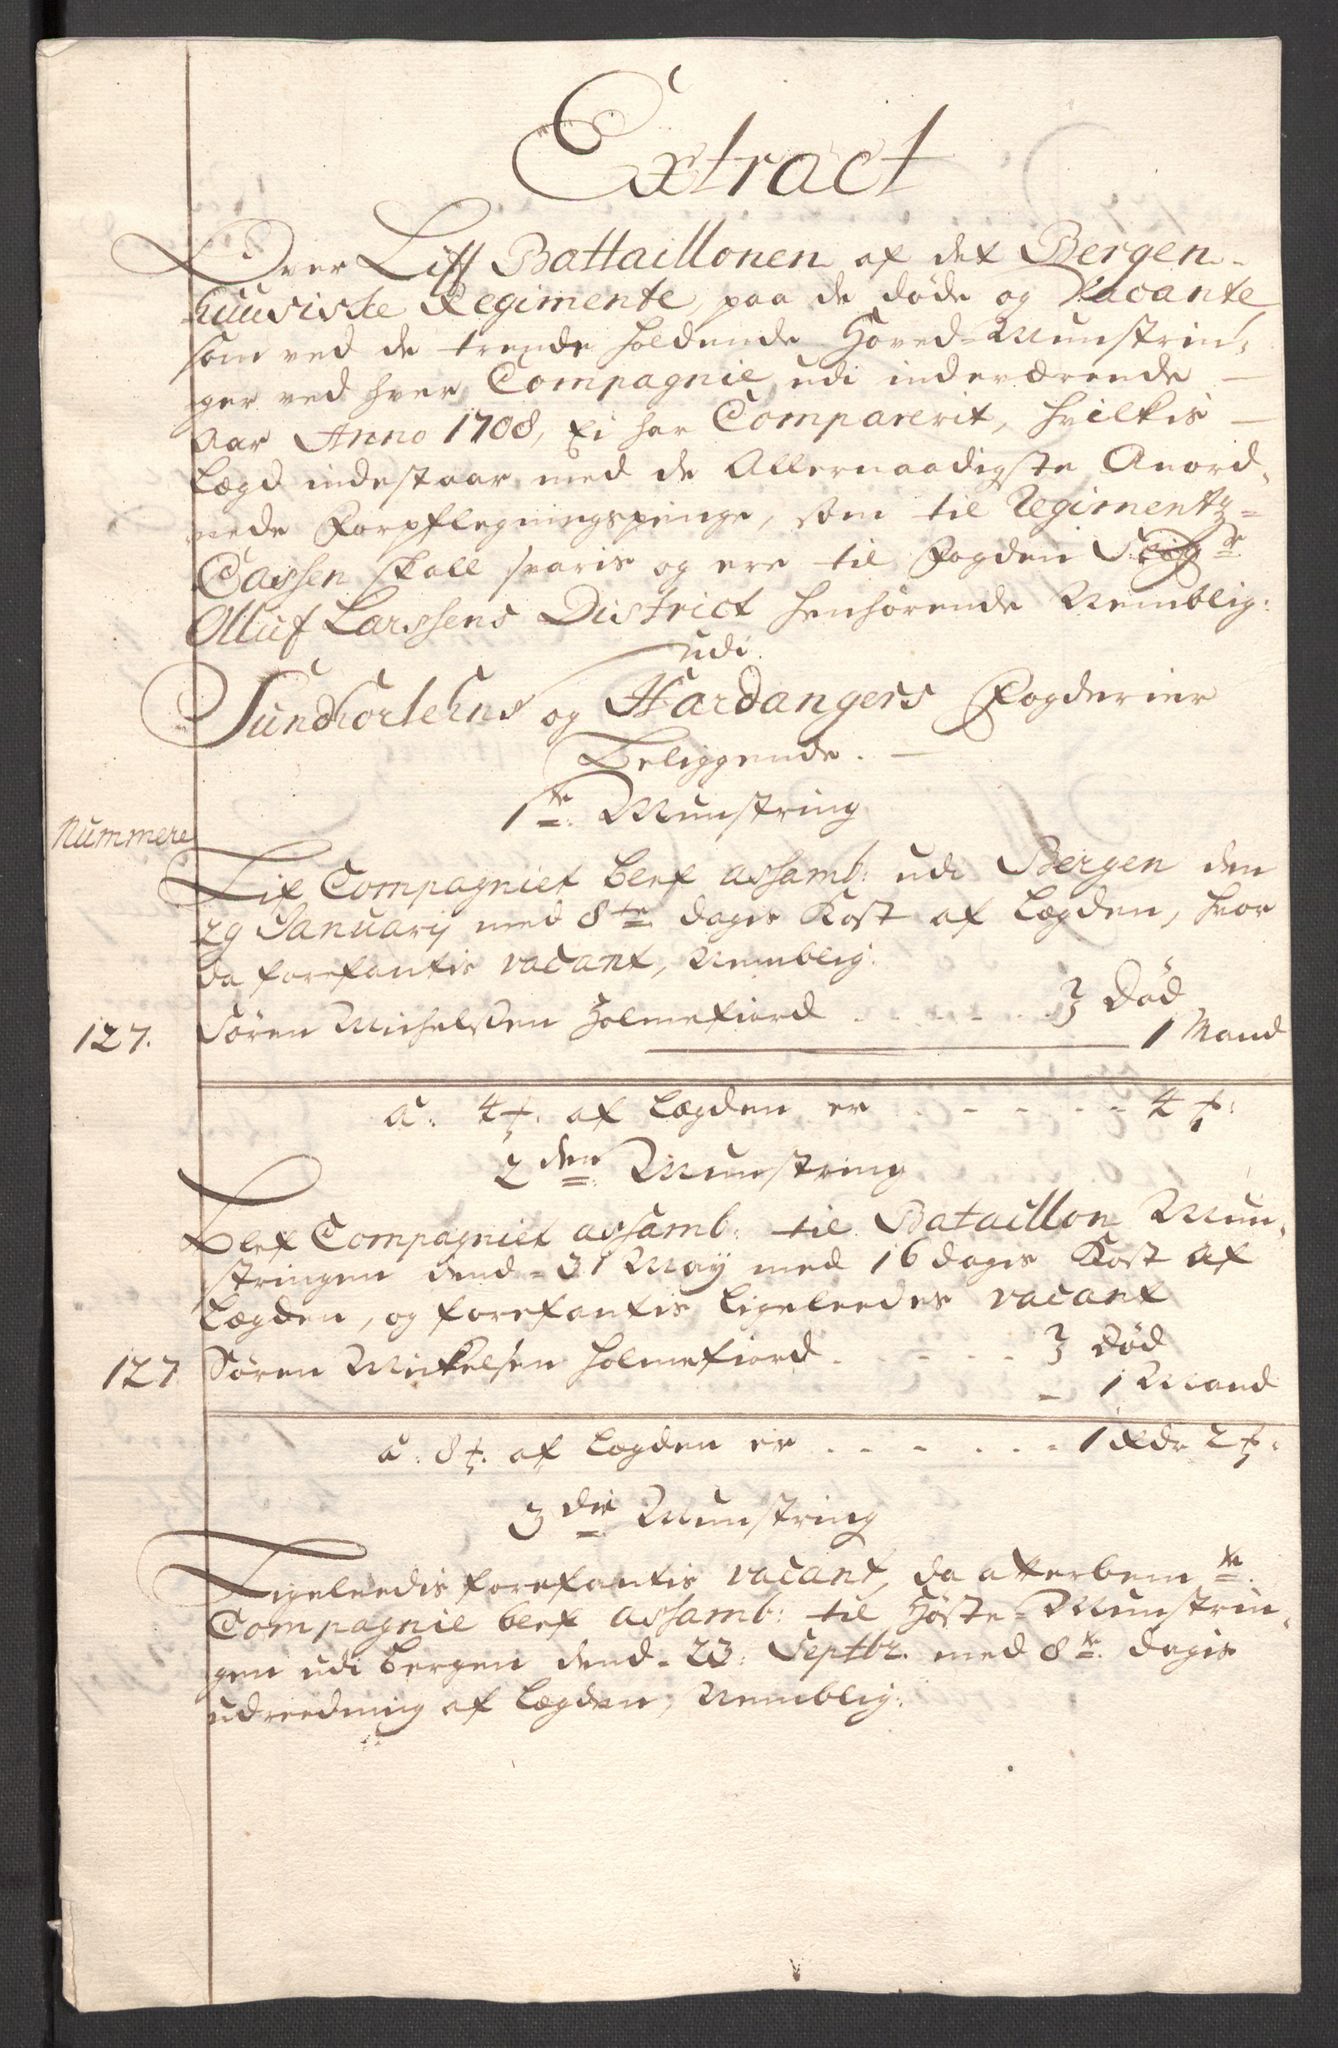 Extract
Over Liff Battaillonen af det Bergen-
huusiske Regimente, paa de døde og Vacante,
som ved de trende holdende Hoved-Munstrin-
ger ved hver Compagnie, udi indeværende -
Aar Anno 1708, Ei har Comparerit, hvilkis -
Lægd indestaar med de Allernaadigste Anord-
nede Forpflegningspenge, som til Regimentz-
Cassen skall svaris og ere til Fogden
Olluf Larssens District henhørende Nemblig:
udi
Sundhorlehns og Hardangers Fogderier
Beliggende. -
1te Munstring
Nummere
Lif Compagniet blef assamb: udi Bergen den
29 Januarij med 8te dagis Kost af Lægden, hvor
da forefantis vacant, Nemblig:
127. Søren Michelsen Holmefiord . . . . . . Død
1 Mand
a: 4 . af Lægden er . - - - - - 4 :
2den Munstring
Blef Compagniet assamb: til Bataillon Mun-
stringen dend - 31 May med 16 dagis Kost af
Lægden, og forefantis ligeleedes vacant
127 Søren Mickelsen Holmefiord . - - - . Død
- 1 Mand
a: 8 . af Lægden er . . - - . . - 1 Rdr 2 :
3die Munstring
Ligeleedis forefantis vacant, da atterbem te
Compagnie blef assamb: til Høste-Munstrin-
gen udi Bergen dend - 23: Septbr. med 8te dagis
udreedning af Lægden, Nemblig: